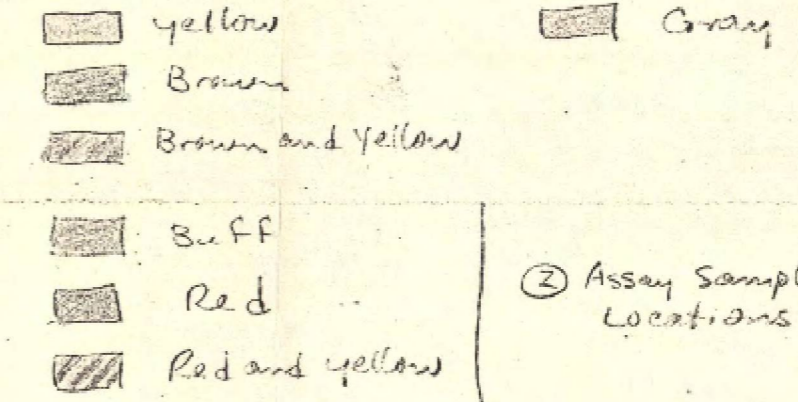 yellow
Gray
Brown
Brown and Yellow
Buff
Red
Red and yellow
② Assay Sampl
Locations